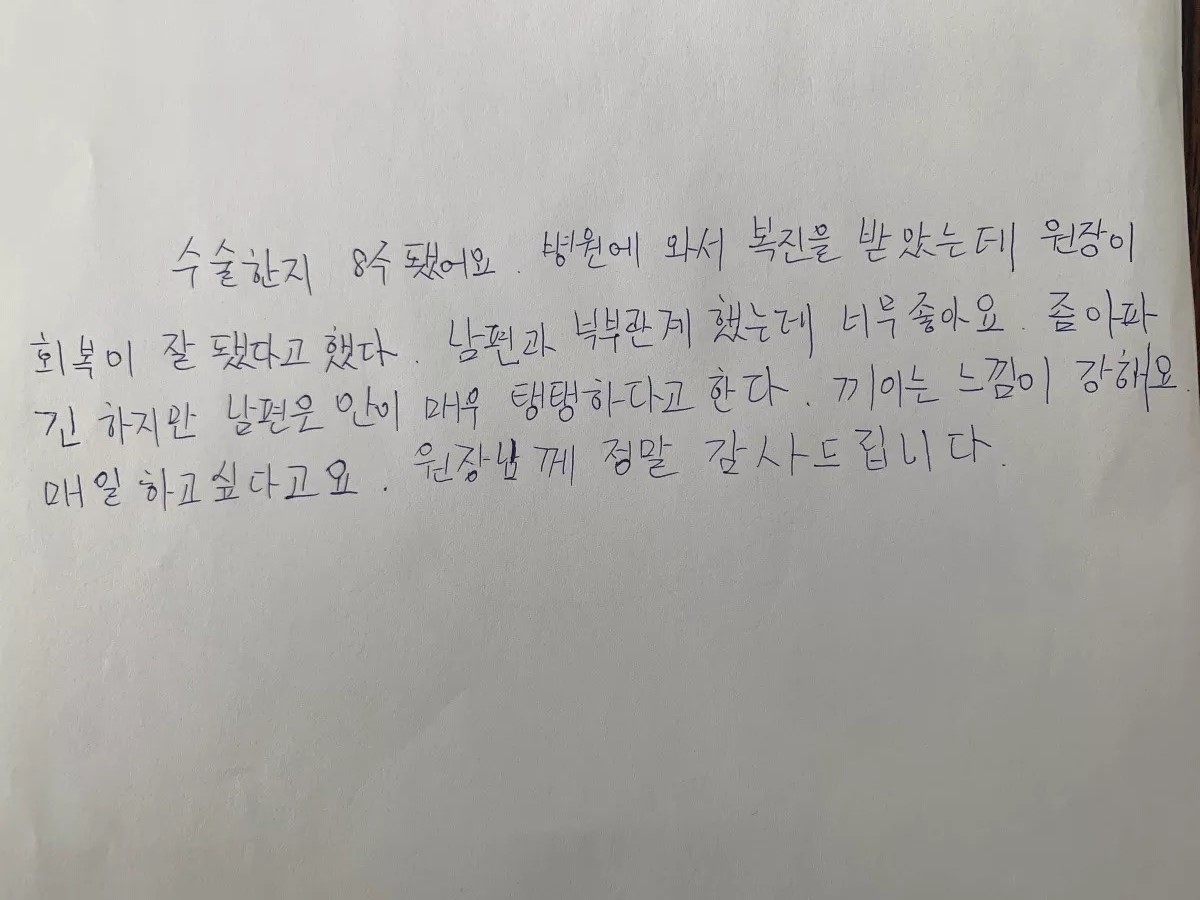 수술한지 8주 됐어요. 병원에 와서 복진을 받았는데 원장이
회복이 잘 됐다고 했다. 남편과 부부관계 했는데 너무 좋아요. 좀 아파
긴 하지만 남편은 안이 매우 탱탱하다고 한다. 끼이는 느낌이 강해요.
매일 하고싶다고요. 원장님께 정말 감사드립니다.